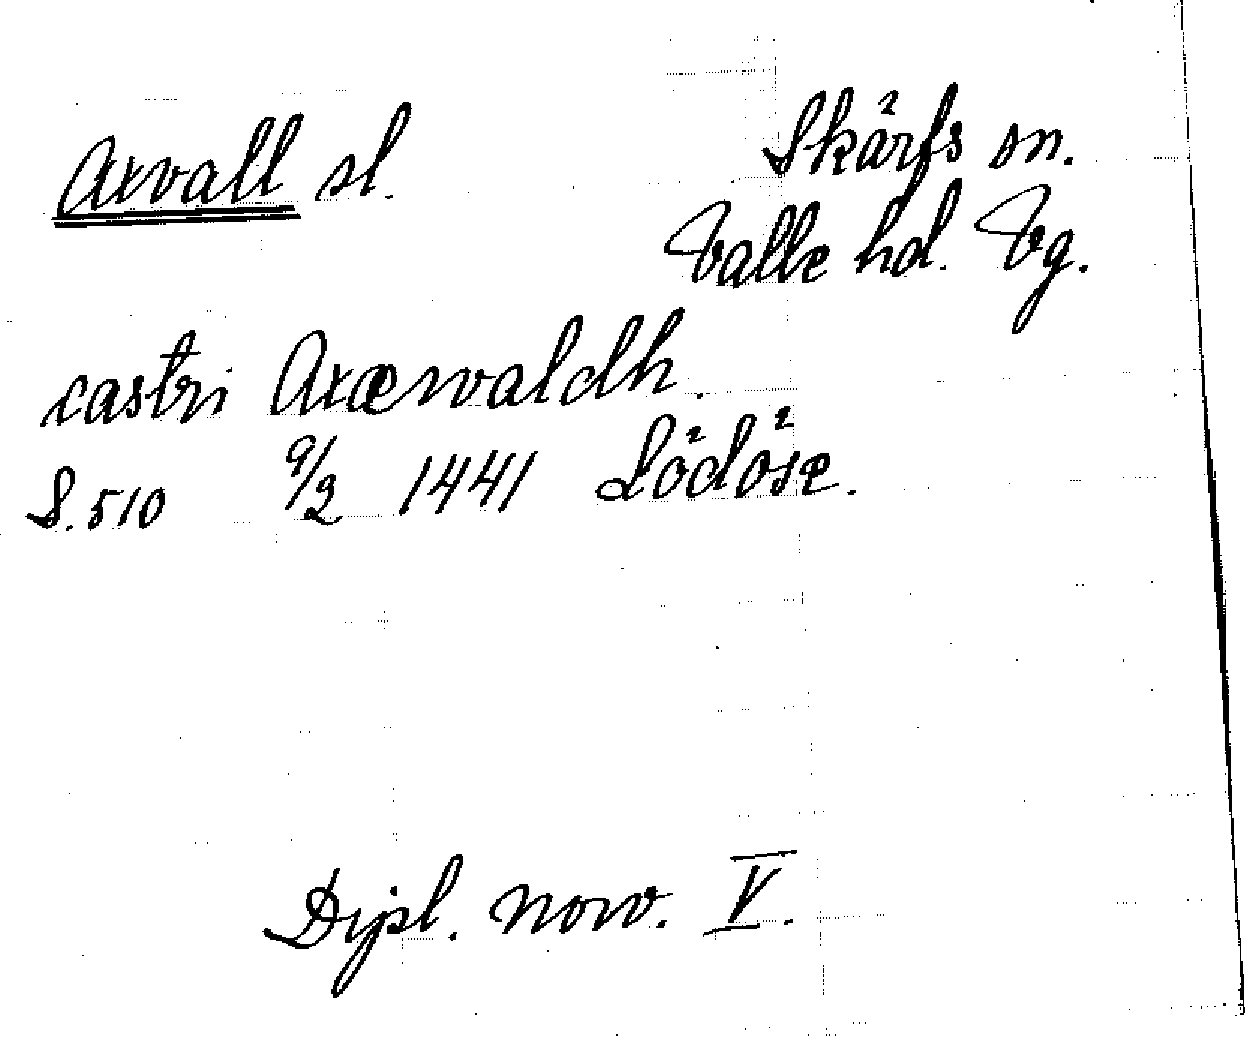 Axvall sl.
Skärfs sn.
Valle hd. Vg.
castri Axæwaldh.
S. 510 9/2 1441 Lödöse.
Dipl. norv. V.